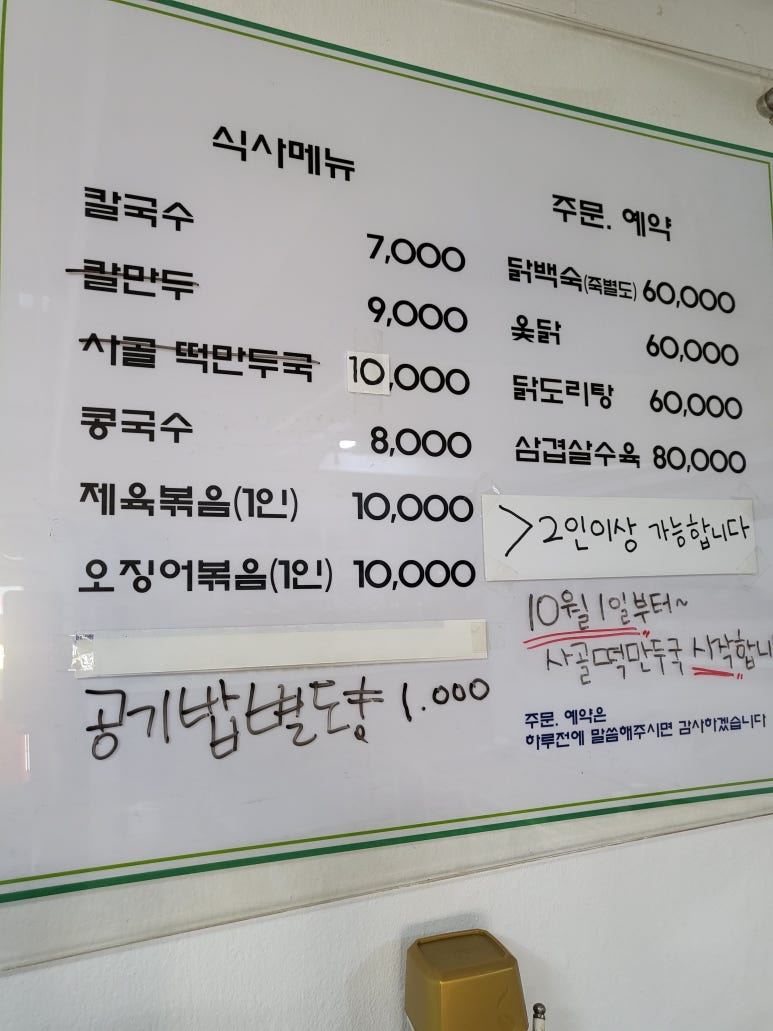 식사메뉴
칼국수 7,000
칼만두 9,000
사골 떡만두국 10,000
콩국수 8,000
제육볶음(1인) 10,000
오징어볶음(1인) 10,000
공기밥별도 1.000
주문. 예약
닭백숙(죽별도) 60,000
옻닭 60,000
닭도리탕 60,000
삼겹살수육 80,000
>2인이상 가능합니다
10월 1일부터~
사골떡만두국 시작합니
주문. 예약은
하루전에 말씀해주시면 감사하겠습니다